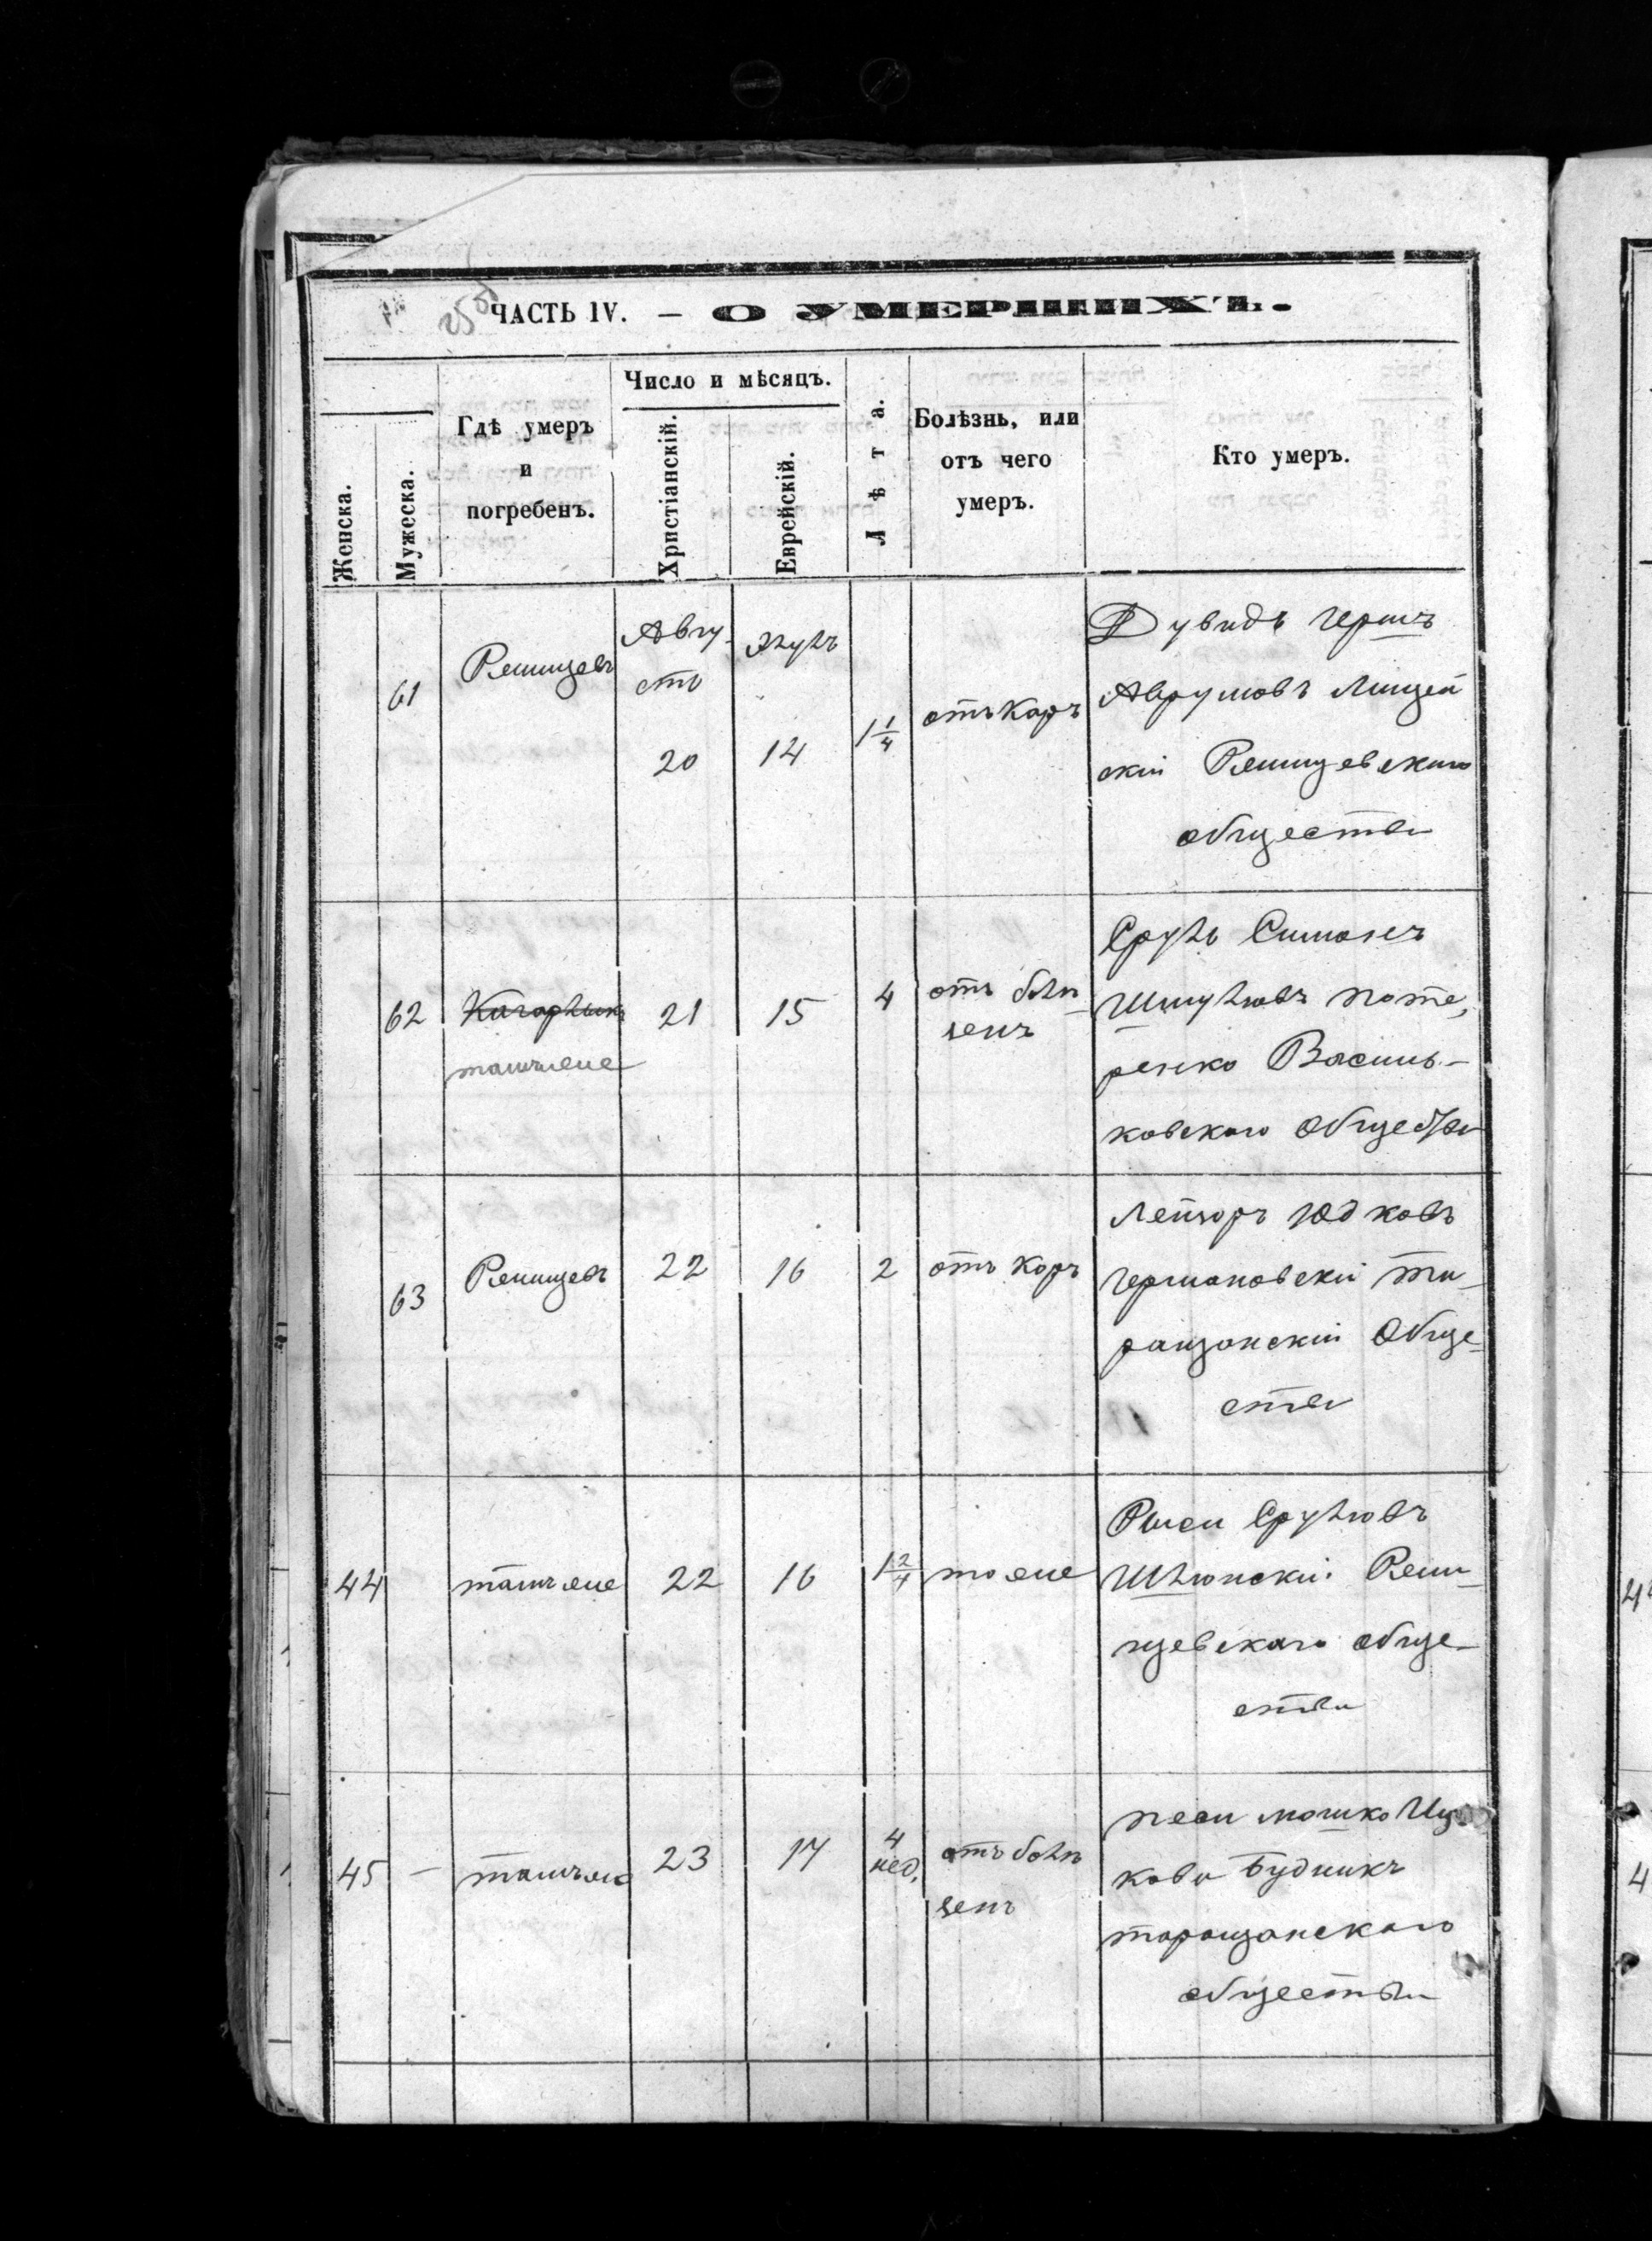 ЧАСТЬ IV. — О УМЕРШИХЪ.
Женска.
Мужеска.
Гдѣ умеръ
и
погребенъ.
Число и мѣсяцъ.
Христіанскій.
Еврейскій.
Лѣта.
Болѣзнь, или
отъ чего
умеръ.
Кто умеръ.
61
Ржищевъ
Авгу-
стъ
20
Элулъ
14
1 1/4
отъ кору
Дувидъ Герш
Аврумовъ
скій Ржищевскаго
общества
62
Кагарлыкъ
тамъ же
21
15
4
отъ болѣ
зни
Сруль Симонъ
Шмулювъ Поте,
ренко Василь-
ковского Общества
63
Ржищевъ
22
16
2
отъ кору
Лейзоръ Юдковъ
Германовскій Та-
ращанскій Обще-
ства
44
тамъ же
22
16
1 2/4
то же
Рыси Срулювъ
Ржи-
щевскаго обще-
ства
45 —
тамъ же
23
17
4
нед.
отъ болѣ
зни
Песи Мошко Иц
кова Будникъ
таращанскаго
общества